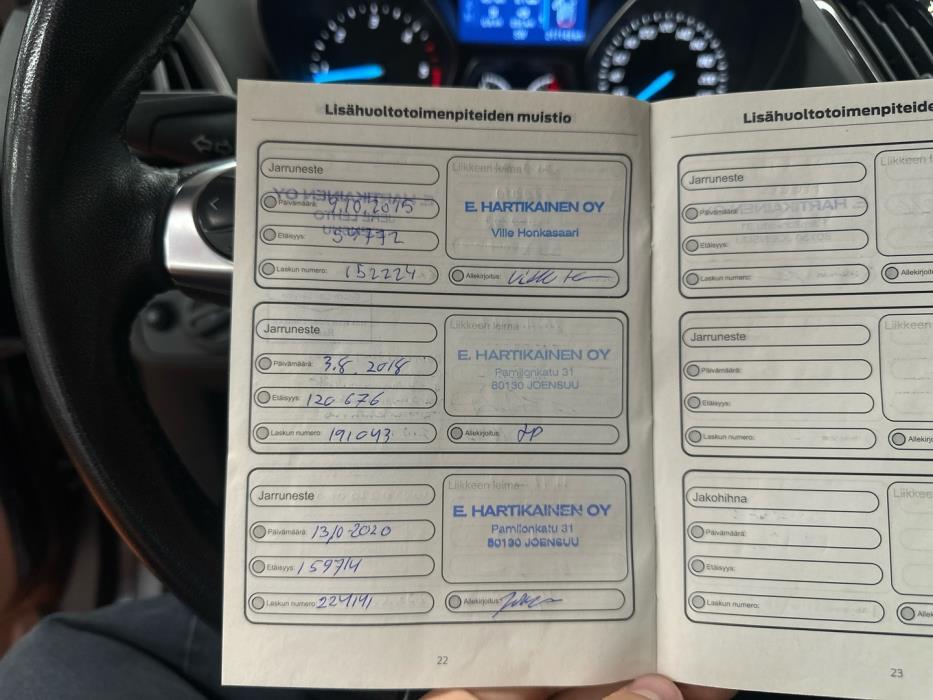 Lisähuoltotoimenpiteiden muistio
Jarruneste
Liikkeen leima
Päivämäärä: 9.10.2015
E. HARTIKAINEN OY
Ville Honkasaari
Etäisyys:
Laskun numero: 152224
Allekirjoitus:
Jarruneste
Liikkeen leima
E. HARTIKAINEN OY
Pamilonkatu 31
80130 JOENSUU
Päivämäärä: 3.8. 2018
Etäisyys: 120 676
Laskun numero: 191043
Allekirjoitus:
Jarruneste
Liikkeen leima
E. HARTIKAINEN OY
Pamilonkatu 31
80130 JOENSUU
Päivämäärä:
Etäisyys: 159714
Laskun numero: 224141
Allekirjoitus:
22
Lisähuoltotoimenpiteide
Jarruneste
Liikkeen
Päivämäärä:
Etäisyys:
Laskun numero:
Allekirjoit
Jarruneste
Liikkeen
Päivämäärä:
Etäisyys:
Laskun numero:
Allekirj
Jakohihna
Liikkee
Päivämäärä:
Etäisyys:
Laskun numero:
Alle
23